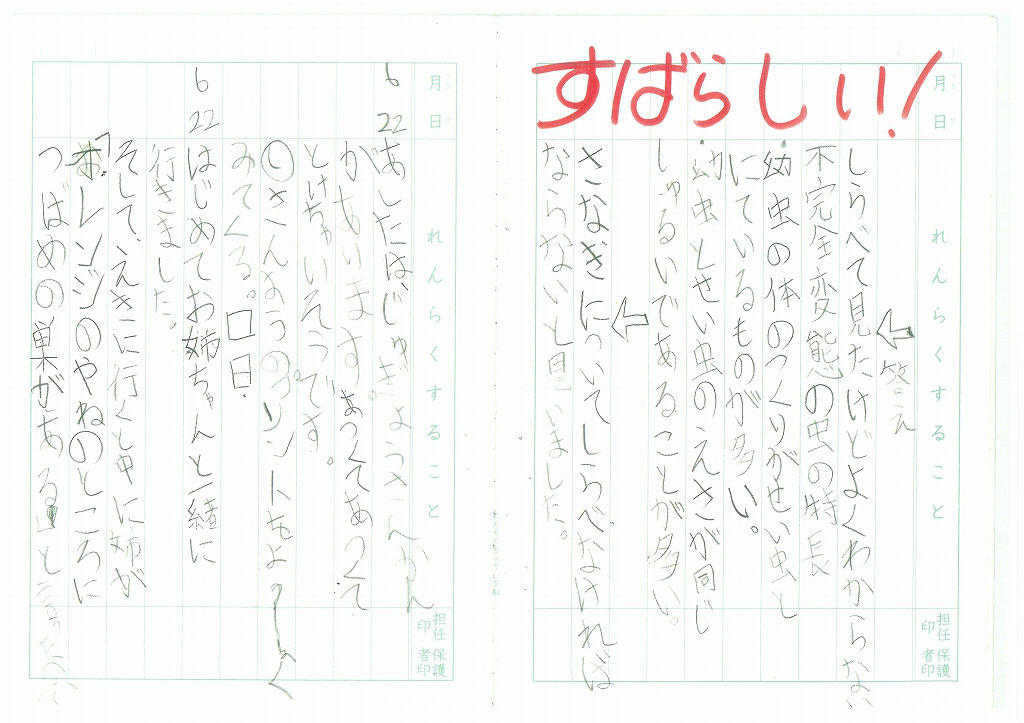 すばらしい!
月
日
れんらくすること
担任印
保護者印
答え
しらべて見たけどよくわからない
不完全変態の虫の特長
・幼虫の体のつくりがせい虫と
にているものが多い。
・幼虫とせい虫のえさが同じ
しゅるいであることが多い。
さなぎについてしらべなければ
ならないと思いました。
月
日
れんらくすること
担任印
保護者印
6 22
あしたは、じゅぎょうさんかん
があります。あつくてあつくて
とけちゃいそうです。
みてくる。口日.
6 22
はじめてお姉ちゃんと一緒に
行きました。
そして、えきに行くと中に姉が
「オレンジのやねのところに
つばめの巣がある」と言った